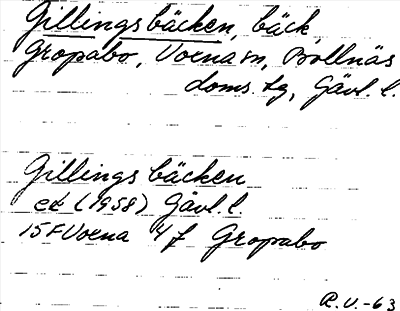 Gillingsbäcken, bäck,
Gropabo, Voxna sn, Bollnäs
doms. tg, Gävl. l.
Gillingsbäcken
ek (1958) Gävl. l.
15F Voxna 4 f Gropabo
R.V.-63